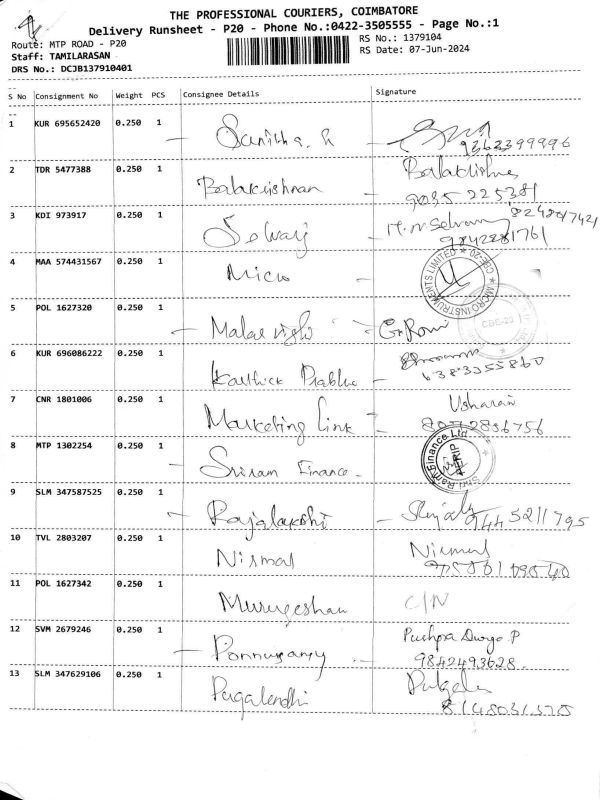 THE PROFESSIONAL COURIERS, COIMBATORE
Delivery Runsheet - P20 - Phone No.:0422-3505555 - Page No.:1
Route: MTP ROAD - P20 RS No.: 1379104
Staff: TAMILARASAN RS Date: 07-Jun-2024
DRS No.: DCJB137910401
S No Consignment No Weight PCS Consignee Details Signature
1 KUR 695652420 0.250 1 Sunitha. R
9362399996
2 TDR 5477388 0.250 1 Balakrishnan Balakrishna
9035225381
3 KDI 973917 0.250 1 Selvaj M.N Selvam
9842881761
4 MAA 574431567 0.250 1 Micro MICRO INSTRUMENTS LIMITED CBE-20
5 POL 1627320 0.250 1 Malar vizhi CBE-20
6 KUR 696086222 0.250 1 Karthick Prabhu
6383355860
7 CNR 1801006 0.250 1 Marketing Link
8 MTP 1302254 0.250 1 Sriram Finance. Shri Ram Finance Ltd
9 SLM 347587525 0.250 1 Rajalakshi 9445211795
10 TVL 2803207 0.250 1 Nirmal Nirmal
11 POL 1627342 0.250 1 Murugeshan C/N
12 SVM 2679246 0.250 1 Ponnusamy Pushpa Durga P
9842493628
13 SLM 347629106 0.250 1 Pugalendhi